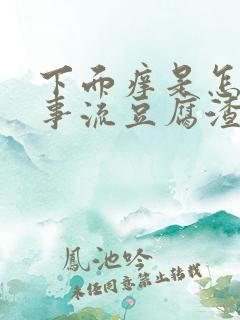 下面痒是怎
事流豆腐渣
鳳池吟
未经同意禁止转载